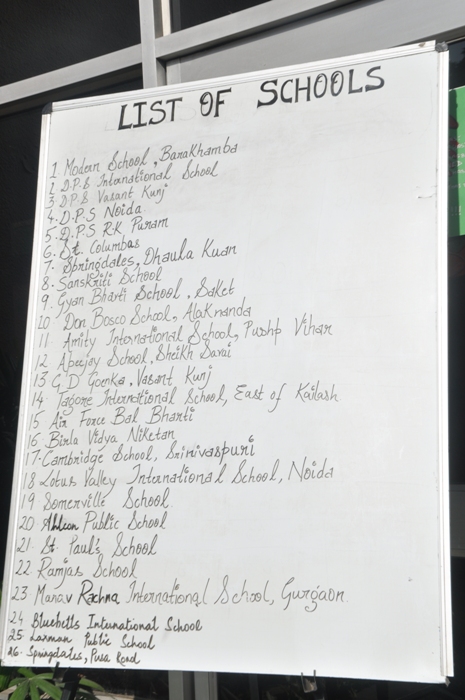 LIST OF SCHOOLS
1. Modern School, Barakhamba
2. D.P.S International School
3. D.P.S Vasant Kunj
4. D.P.S Noida
5. D.P.S R.K Puram
6. St. Columbas
7. Springdales, Dhaula Kuan
8. Sanskriti School
9. Gyan Bharti School, Saket
10 Don Bosco School, Alaknanda
11 Amity International School, Pushp Vihar
12 Apeejay School, Sheikh Sarai
13 G D Goenka, Vasant Kunj
14. Tagore International School, East of Kailash
15 Air Force Bal Bharti
16 Birla Vidya Niketan
17. Cambridge School, Srinivaspuri
18 Lotus Valley International School, Noida
19 Somerville School
20 Ahlcon Public School
21. St. Paul's School
22 Ramjas School
23 Manav Rachna International School, Gurgaon
24 Bluebells International School
25. Laxman Public School
26. Springdales, Pusa Road